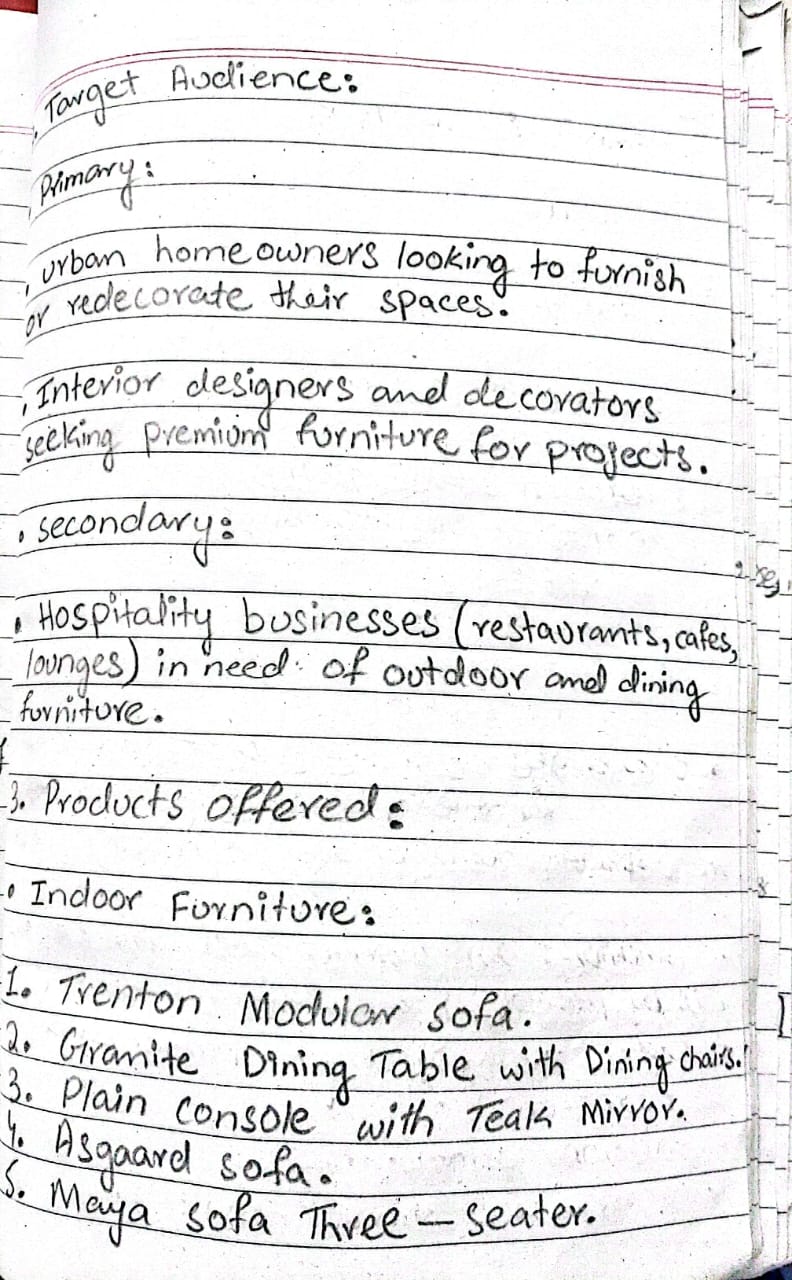 Target Audience:
Primary:
urban homeowners looking to furnish
or redecorate their spaces.
Interior designers and decorators
seeking premium furniture for projects.
• secondary:
• Hospitality businesses (restaurants, cafes,
lounges) in need of outdoor and dining
furniture.
3. Products offered:
• Indoor Furniture:
1. Trenton Modular sofa.
2. Granite Dining Table with Dining chairs.
3. Plain console with Teak Mirror.
4. Asgaard sofa.
5. Maya sofa Three - seater.